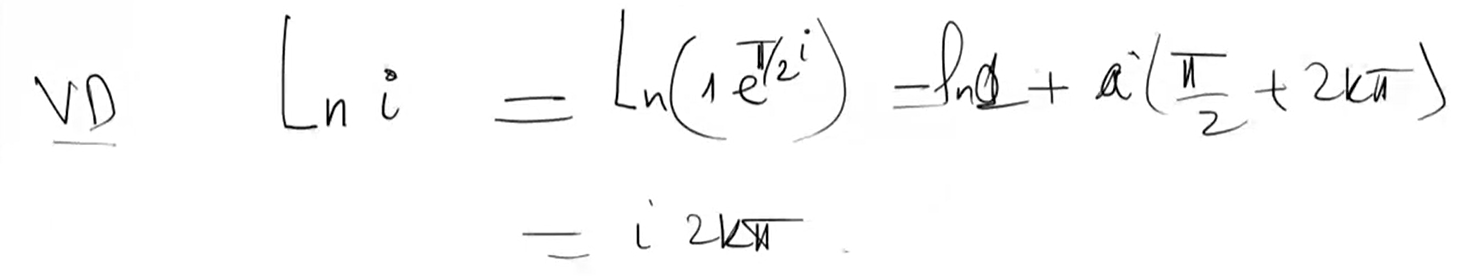 VD Ln i = Ln(1e^{π/2 i}) = ln1 + i(π/2 + 2kπ)
= i 2kπ.